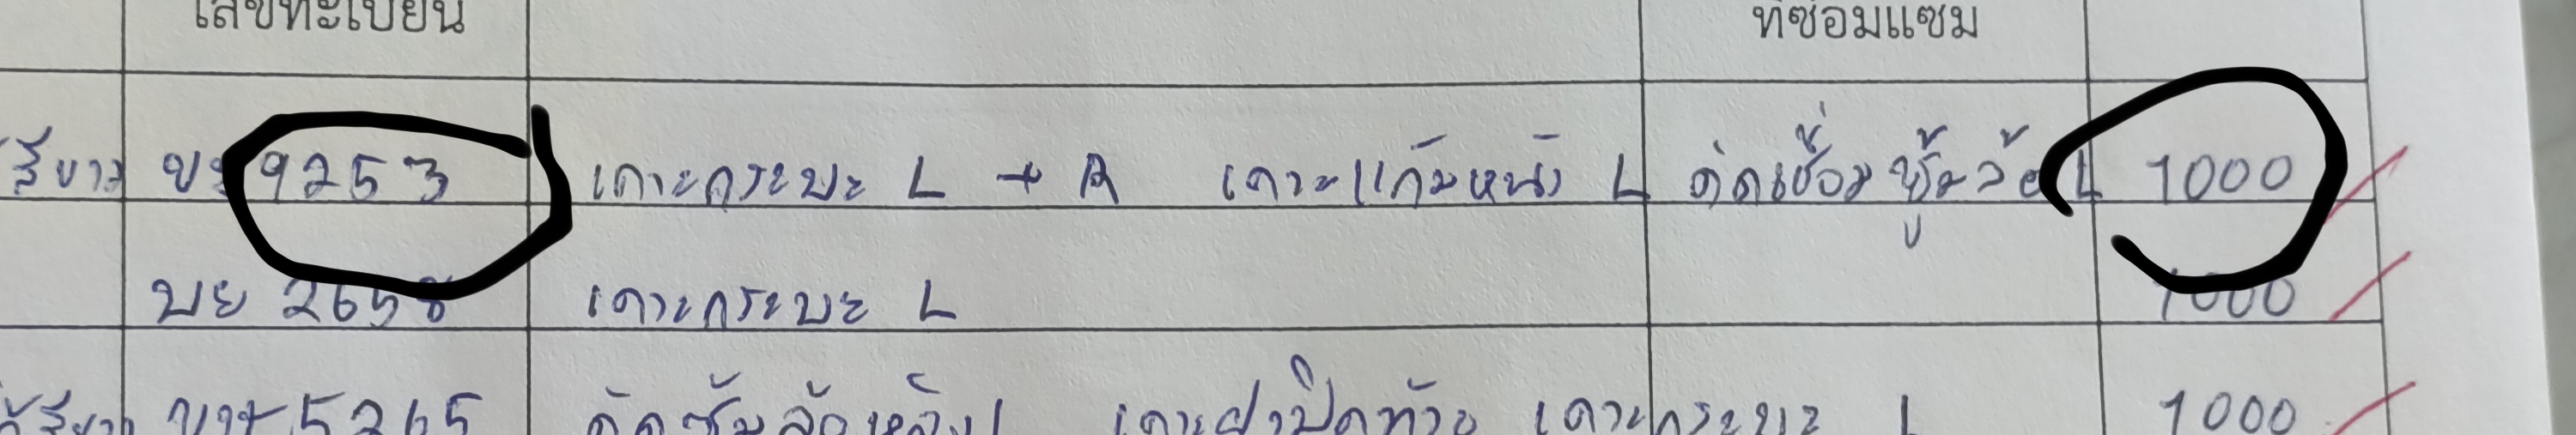 เลขทะเบียน ที่ซ่อมแซม
สีขาว 9253 เคาะกระบะ L + R เคาะแก้มหน้า L ดัดเชื่อมซุ้มล้อ L 1000
บย 2658 เคาะกระบะ L 1000
5265 ดัดซุ้มล้อหลัง L เคาะฝาปิดท้าย เคาะกระบะ L 1000